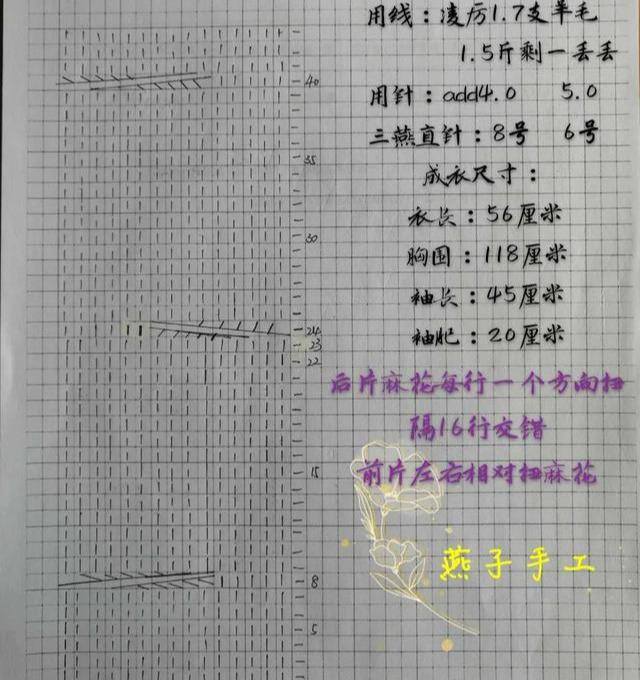 用线：凌厉1.7支羊毛
1.5斤剩一丢丢
用针：add4.0 5.0
三燕直针：8号 6号
成衣尺寸：
衣长：56厘米
胸围：118厘米
袖长：45厘米
袖肥：20厘米
后片麻花每行一个方向扭
隔16行交错
前片左右相对扭麻花
燕子手工
40
35
30
24
23
22
15
8
5